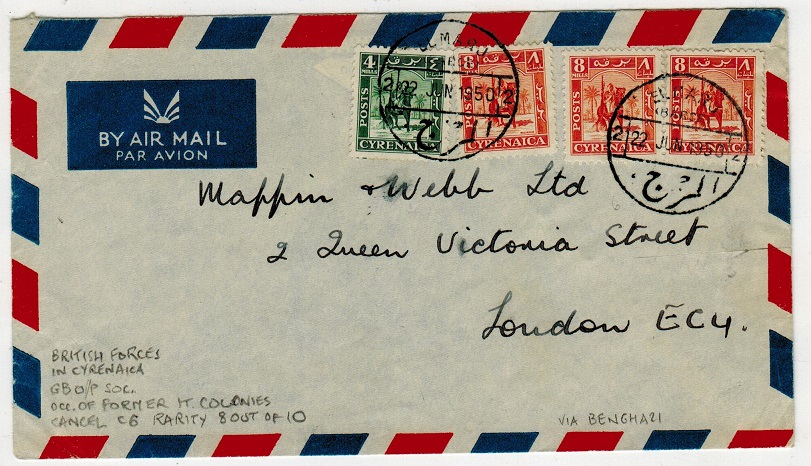 BY AIR MAIL
PAR AVION
4 ٤
MILLS
POSTS
برقة
CYRENAICA
8 ٨
MILLS
POSTS
برقة
CYRENAICA
8 ٨
MILLS
POSTS
برقة
CYRENAICA
8 ٨
MILLS
POSTS
برقة
CYRENAICA
EL MARJ
22 JUN 1950
المرج
EL MARJ
22 JUN 1950
المرج
Mappin & Webb Ltd
2 Queen Victoria Street
London EC4.
BRITISH FORCES
IN CYRENAICA
GB O/P SOC.
OCC. OF FORMER IT COLONIES
CANCEL C6 RARITY 8 OUT OF 10
VIA BENGHAZI